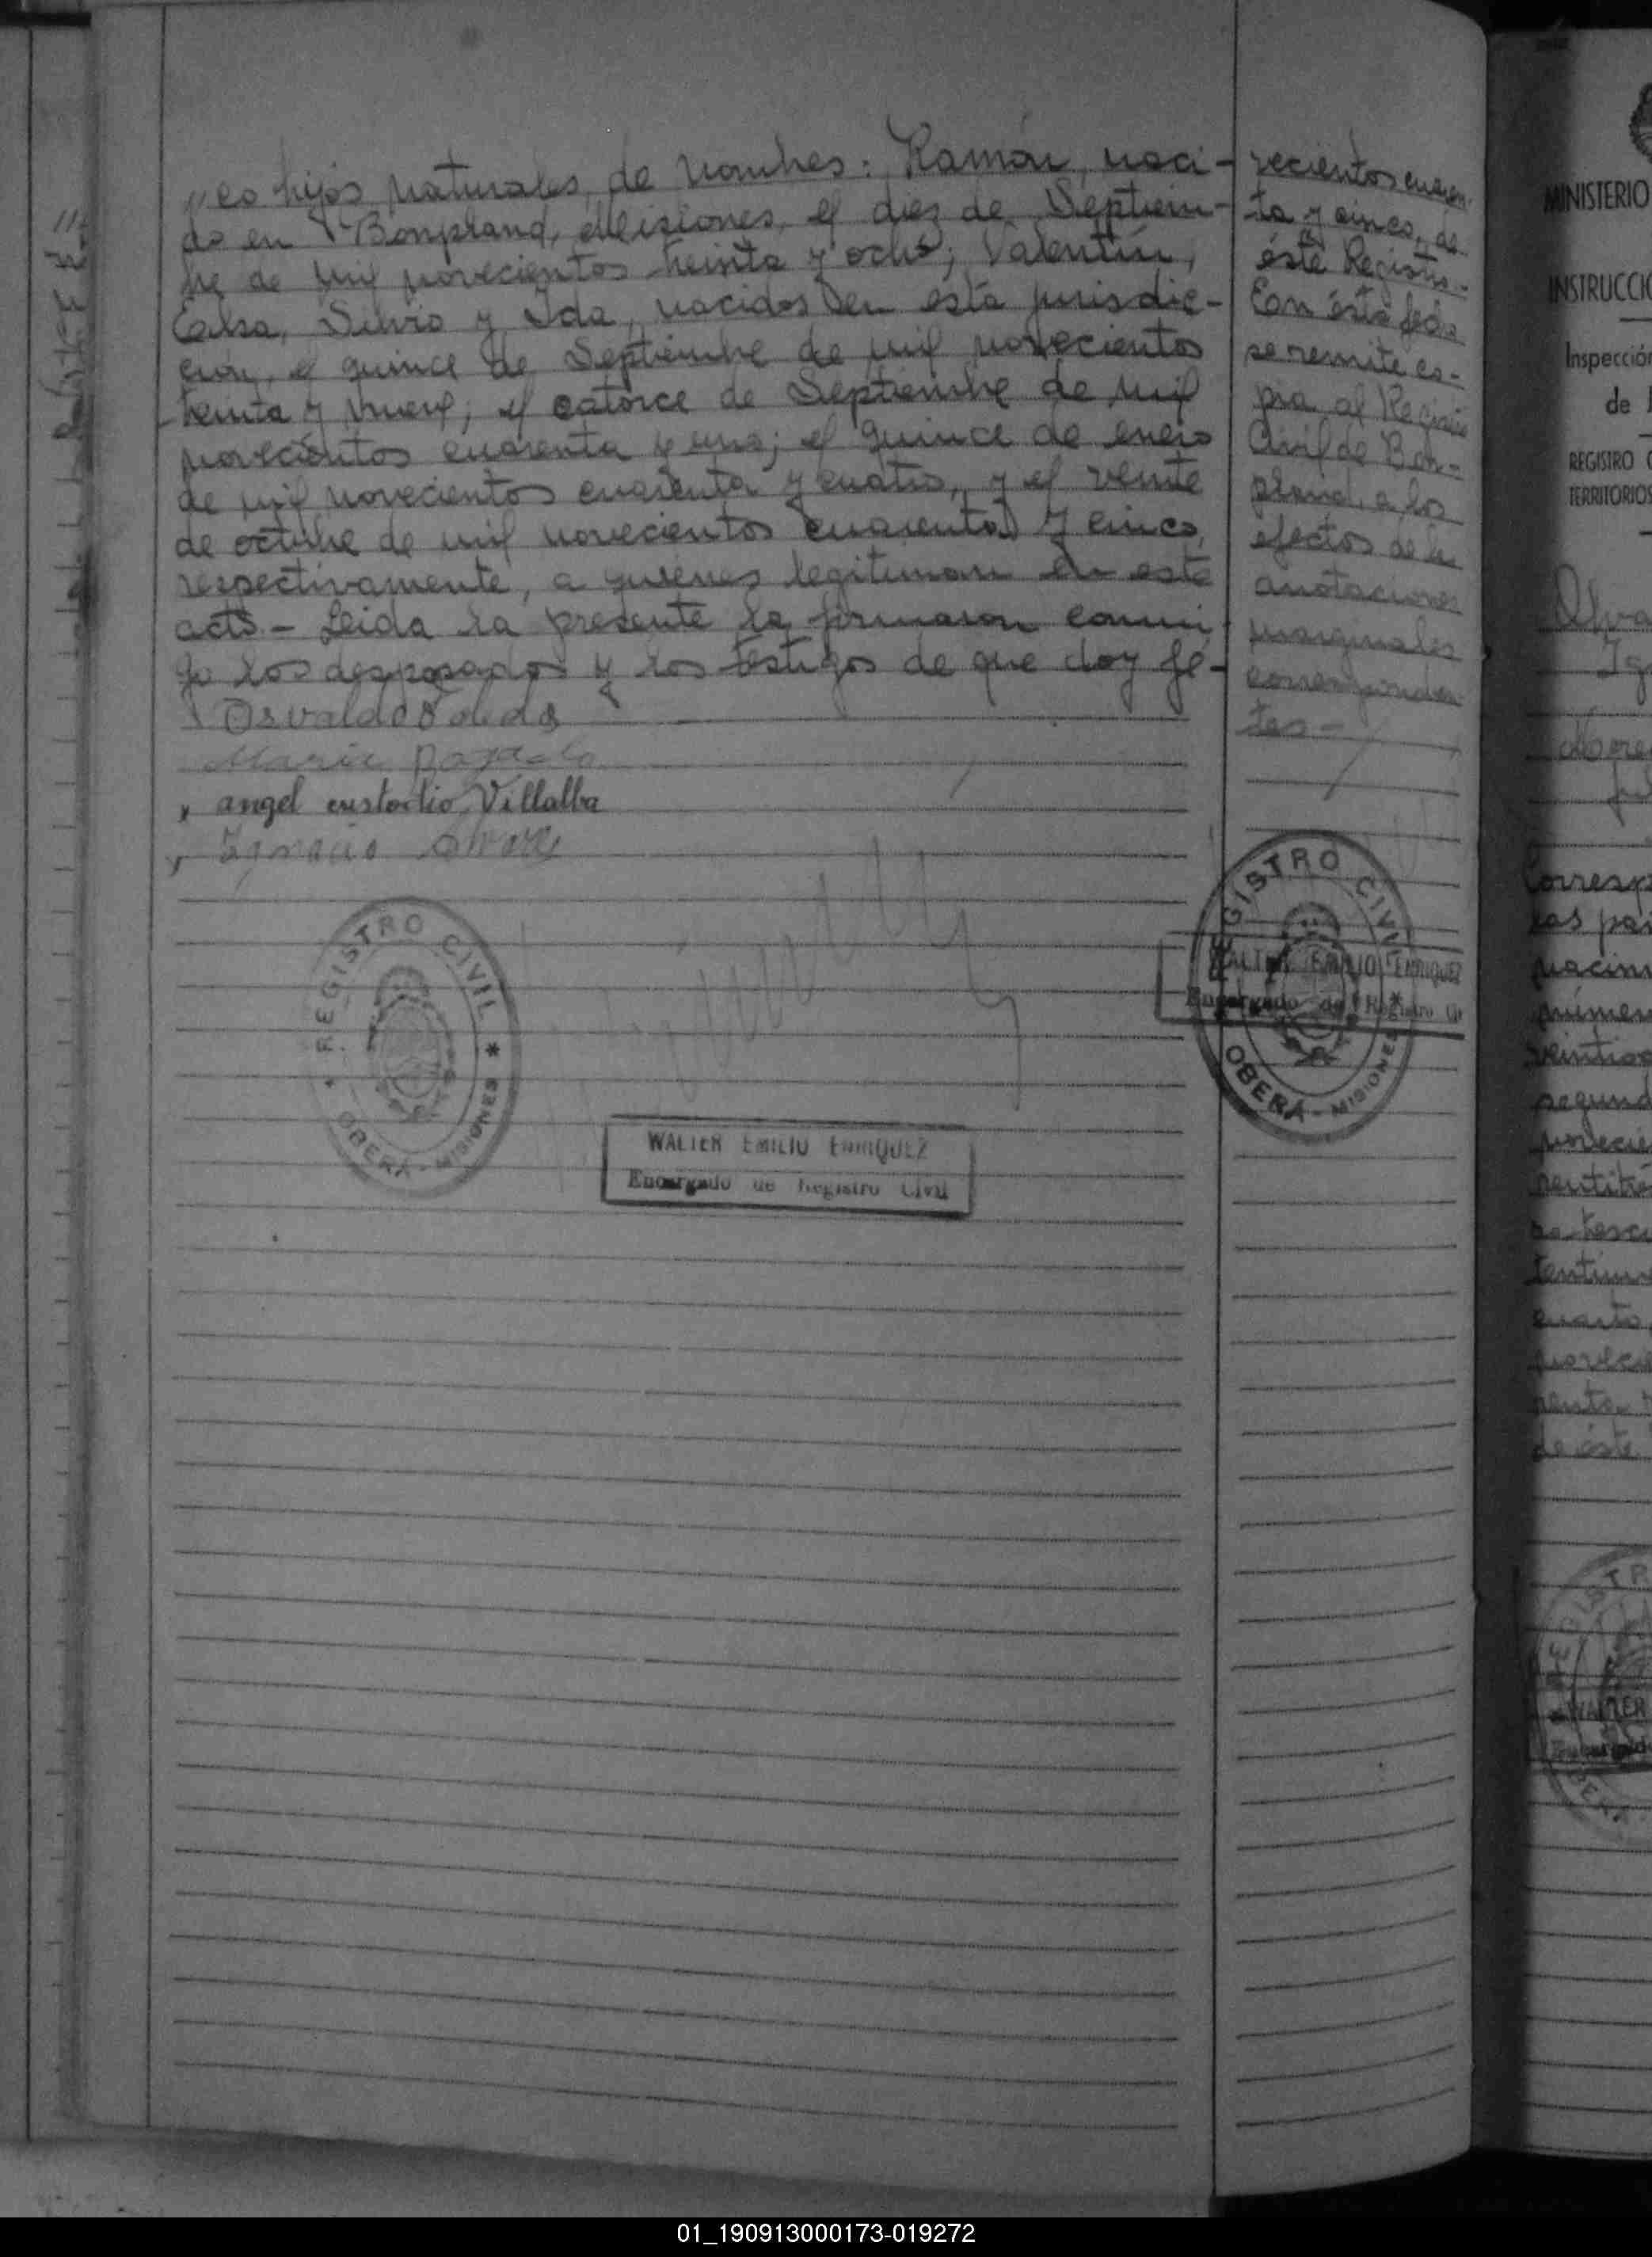 co hijos naturales, de nombres: Ramón, naci-
do en Bonpland, Misiones, el diez de Septiem-
bre de mil novecientos treinta y ocho; Valentín,
Silvio y Ida, nacidos en esta jurisdic-
ción, el quince de Septiembre de mil novecientos
treinta y nueve; el catorce de Septiembre de mil
novecientos cuarenta y uno; el quince de enero
de mil novecientos cuarenta y cuatro, y el veinte
de octubre de mil novecientos cuarenta y cinco,
respectivamente, a quienes legitiman en este
acto.- Leida la presente la firmaron conmi
go los desposados y los testigos de que doy fé-
Osvaldo
Maria
angel custodio Villalba
Ignacio
REGISTRO CIVIL
* OBERÁ - MISIONES *
WALTER EMILIO ENRIQUEZ
Encargado de Registro Civil
vecientos cuaren-
ta y cinco, de
éste Registro.-
Con ésta fecha
se remite co-
pia al Registro
Civil de Bon-
pland, a los
efectos de las
anotaciones
marginales
correspondien
tes-
REGISTRO CIVIL
OBERÁ - MISIONES *
WALTER EMILIO ENRIQUEZ
Encargado de Registro Ci
MINISTERIO
INSTRUCCIO
Inspección
de
REGISTRO C
TERRITORIOS
Ig
corresp
las par
nacim
númer
segund
cuarto,
de éste
WALTER
01_190913000173-019272